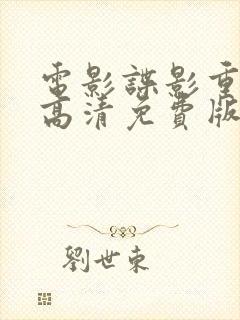 電影諜影重
高清免費版
劉世東